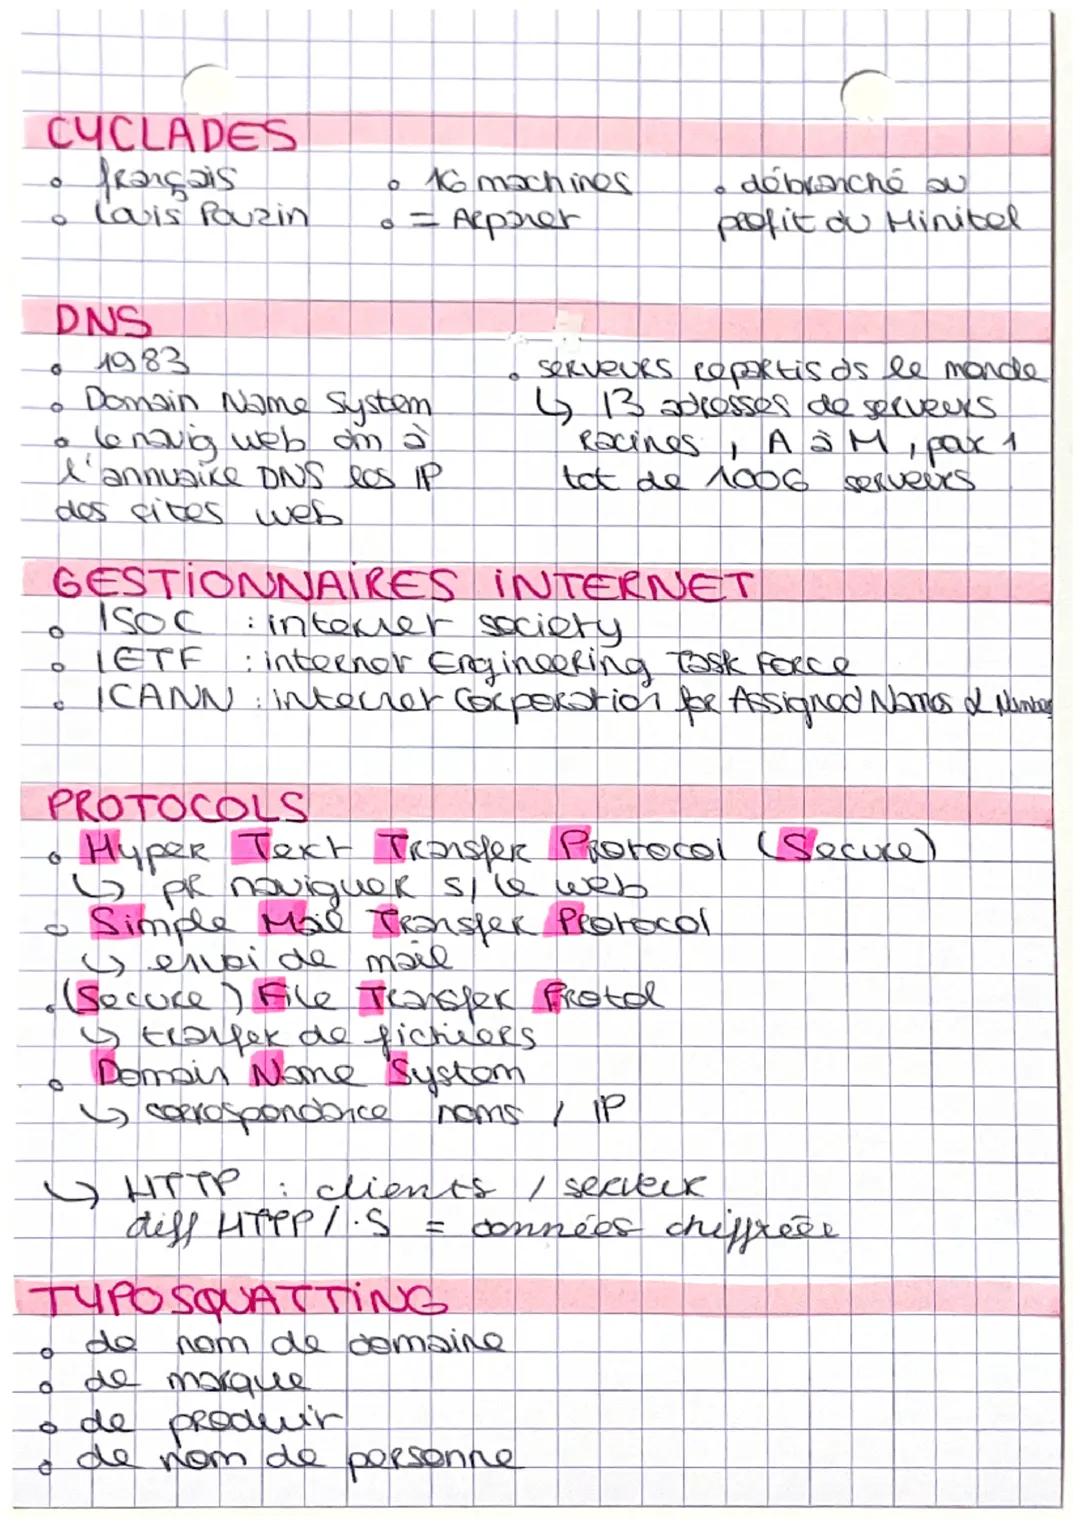 CYCLADES
• français
• Louis Pouzin
• 16 machines
• = Arpanet
• débranché au
profit du Minitel
DNS
• 1983
• Domain Name System
• le navig web dm à
l'annuaire DNS les IP
des sites web
• serveurs repartis ds le monde
↳ 13 adresses de serveurs
racines, A à M, pour 1
tot de 1006 serveurs
GESTIONNAIRES INTERNET
• ISOC : internet society
• IETF : internet Engineering Task Force
• ICANN : internet Corporation for Assigned Names & Numbers
PROTOCOLS
• Hyper Text Transfer Protocol (Secure)
↳ pr naviguer s/ le web
• Simple Mail Transfer Protocol
↳ envoi de mail
• (Secure) File Transfer Protol
↳ tranfer de fichiers
• Domain Name System
↳ correspondance noms / IP
↳ HTTP : clients / serveur
diff HTPP/·S = données chiffrées
TYPOSQUATTING
• de nom de domaine
• de marque
• de produit
• de nom de personne